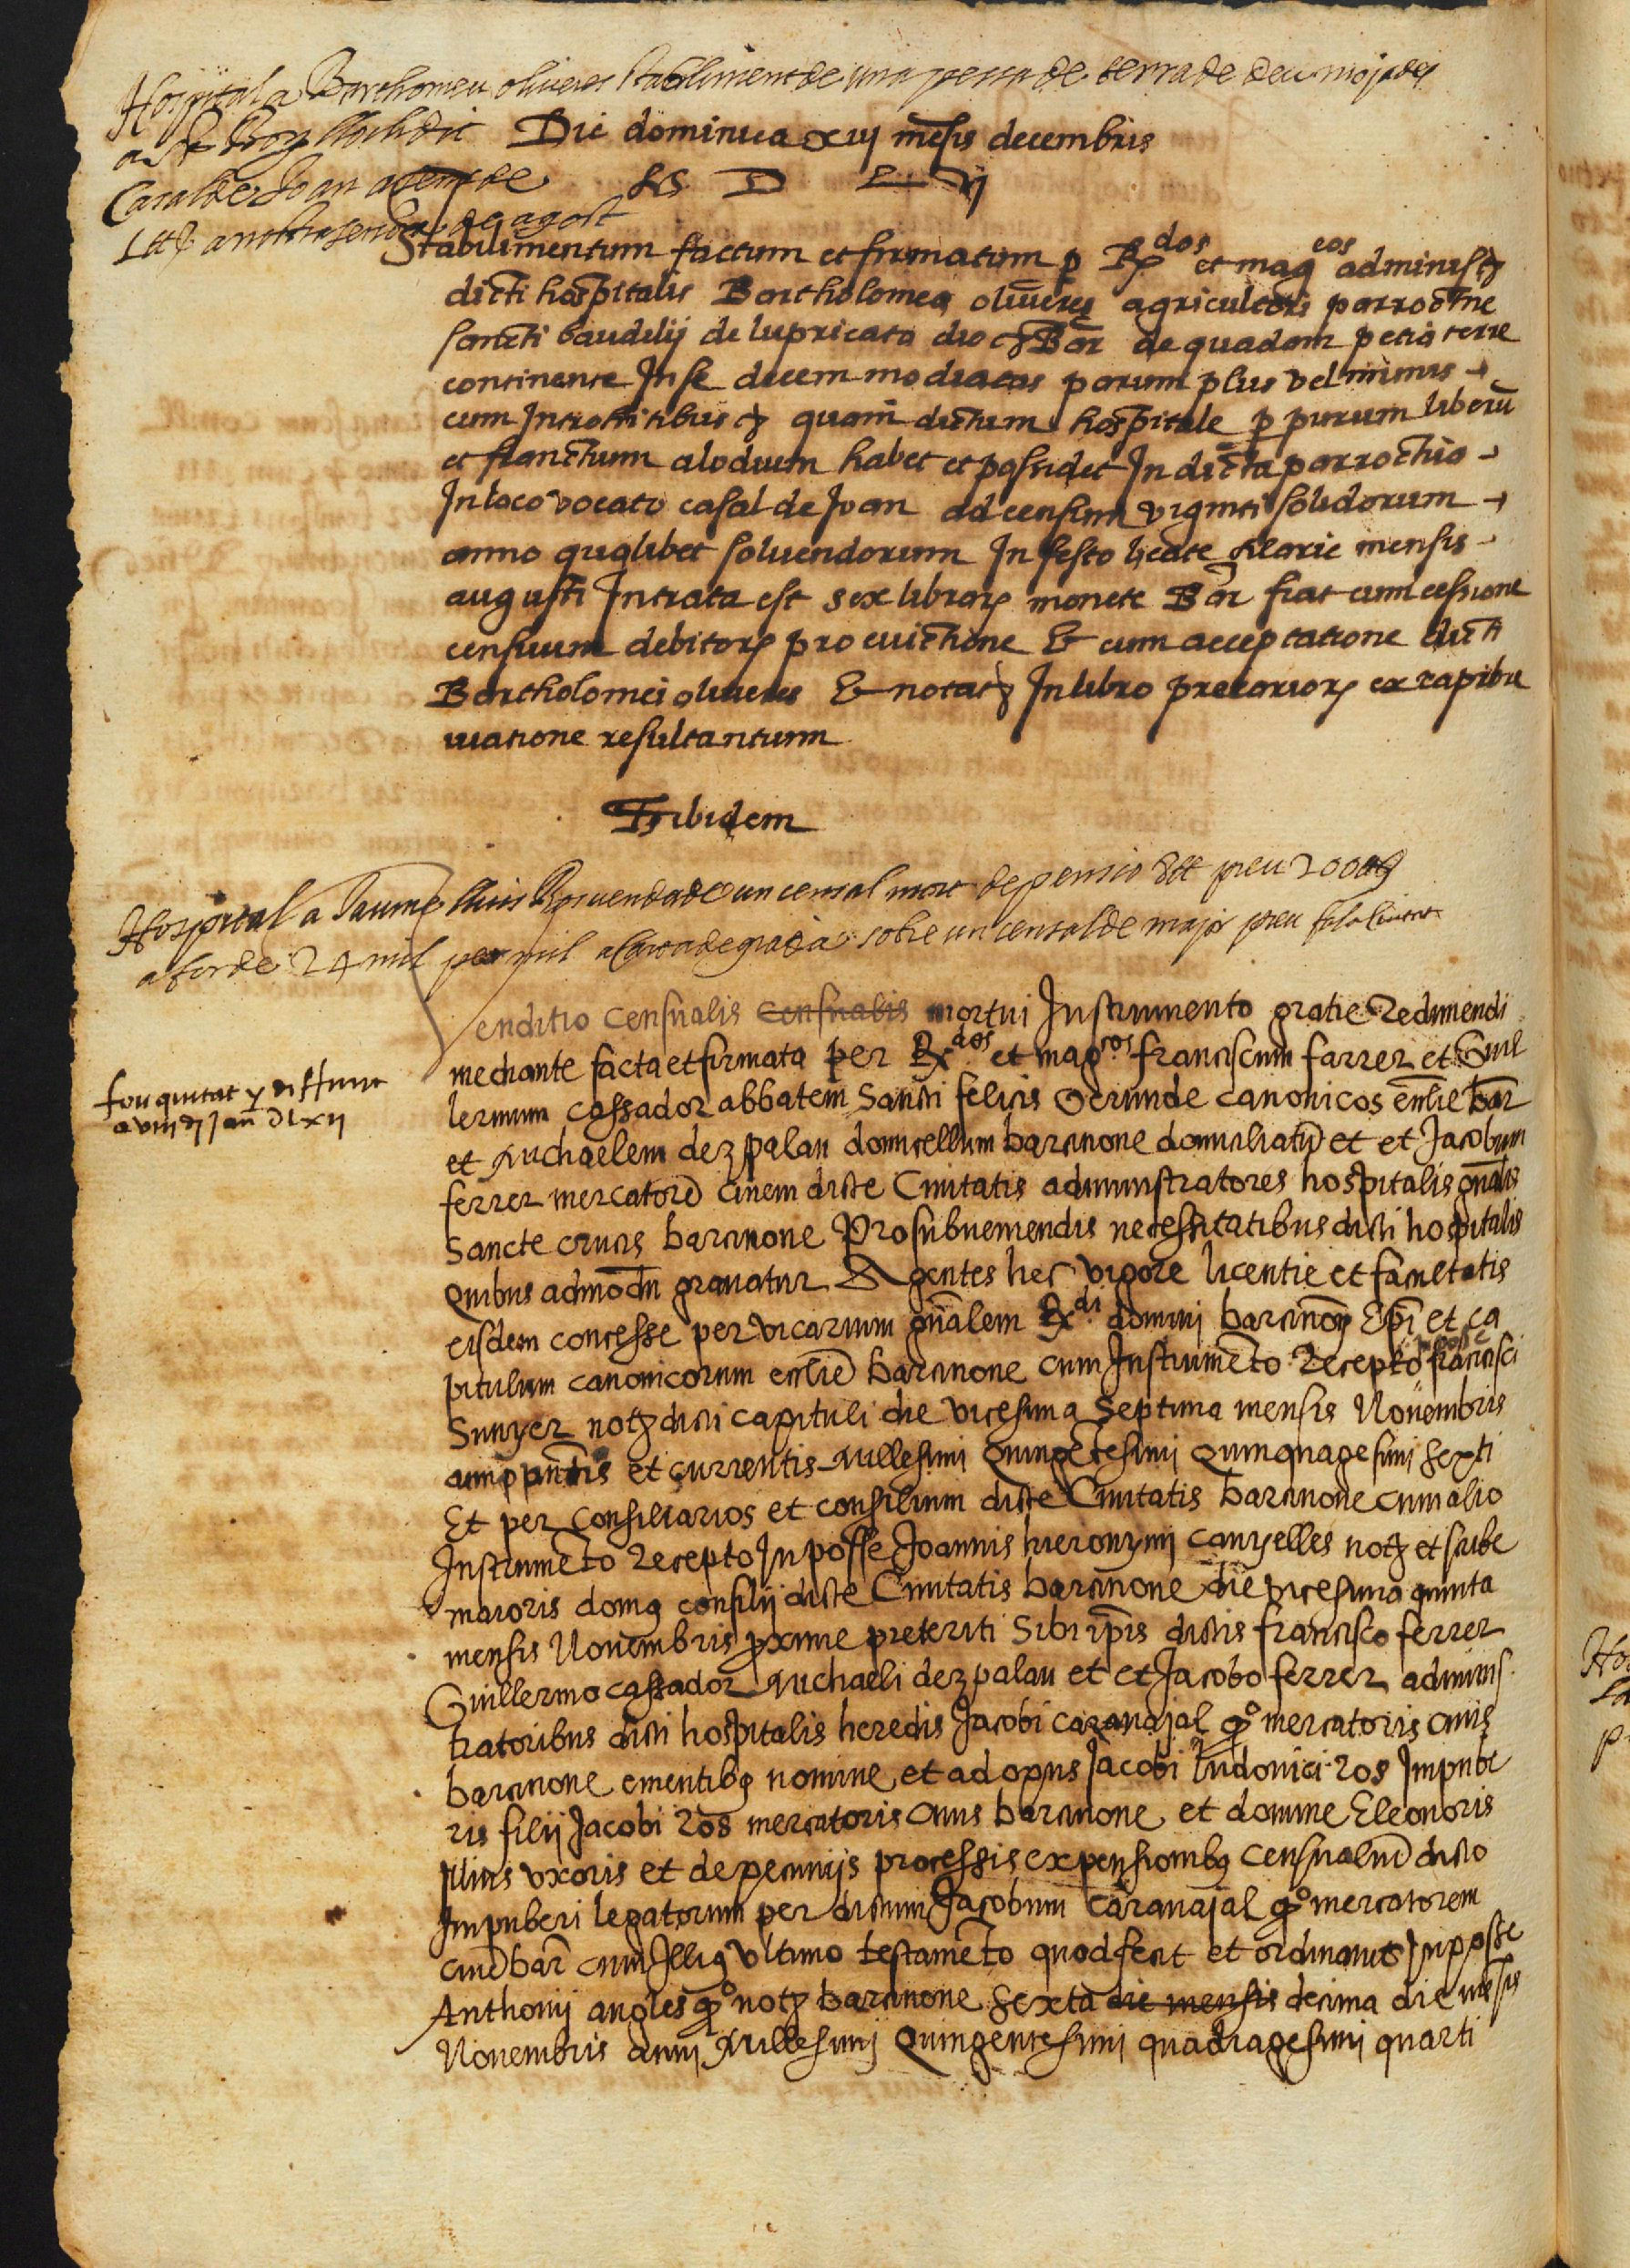 Hospital a Barthomeu oliueres stabliment de una pessa de terra de deu mojades
a St Boy lloch dit
Casal de Joan a cens de
1 ll a nostra senyora de agost
Die dominica xiij mensis decembris
Ls D L vj
Stabilimentum factum et firmatum p Rdos et magcos administ
dicti hospitalis Bartholomeo oliueres agricultori parrochie
sancti baudilij de lupricato dioc Bar de quadam petia terre
continente In se decem modiatas parum plus vel minus
cum Introhitibus quam dictum hospitale p purum liberu
et franchum alodium habet et possidet In dicta parrochia
In loco vocato casal de Joan ad censum viginti solidorum
anno quolibet soluendorum In festo beate Marie mensis
augusti Intrata est sex librar monete Bar fiat cum cessione
censuum debitor pro euictione & cum acceptatione dicti
Bartholomei oliueres & notat In libro precarior ex capibre
uiatione resultantium
Ibidem
Hospital a Jaume lluis Ros venda de un censal mort de pensio 8 ll preu 200 ll
a for de 24 mil per mil a carta de gracia sobre un censal de major preu
fou quitat y diffinit
a viiij Jan DLxij
Venditio censualis censualis mortui Instrumento gratie Redimendi
mediante facta et firmata per Rdos et magcos franciscum farrer et Guil
lermum cassador abbatem Sancti felicis Gerunde canonicos ecclie bar
et Michaelem dezpalau domicellum barcinone domiciliatu et et Jacobum
ferrer mercatore ciuem dicte Ciuitatis administratores hospitalis gnalis
Sancte crucis barcinone Pro subueniendis necessitatibus dicti hospitalis
quibus admodu grauatur Agentes hec vigore licentie et facultatis
eisdem concesse per vicarium gnalem Rdi domini barcinon Epi et ca
pitulum canonicorum ecclie barcinone cum Instrumeto Recepto in posse francisci
Sunyer not dicti capituli die vicesima Septima mensis Nouembris
anni pntis et currentis Millesimi quingetesimi quinquagesimi sexti
Et per Consiliarios et consilium dicte Ciuitatis barcinone cum alio
Instrumeto Recepto In posse Joannis hieronymi canyelles not et scribe
maioris domq consilij dicte Ciuitatis barcinone die vicesima quinta
mensis Nouembris pxime preteriti Sibi ipis dictis francisco ferrer
Guillermo cassador Michaeli dezpalau et et Jacobo ferrer adminis
tratoribus dicti hospitalis heredis Jacobi carauajal qo mercatoris ciuis
barcinone ementibq nomine et ad opus Jacobi ludouici Ros Impube
ris filij Jacobi Ros mercatoris ciuis barcinone et domine Eleonoris
illius vxoris et de pecunijs processis ex pensionibq censualiu dicto
Impuberi legatorum per dictum Jacobum carauajal qo mercatorem
ciue bar cum Illiq vltimo testameto quod fecit et ordinauit In posse
Anthonij angles qo not barcinone sexta die mensis decima die mesis
Nouembris anni Millesimi quingentesimi quadragesimi quarti